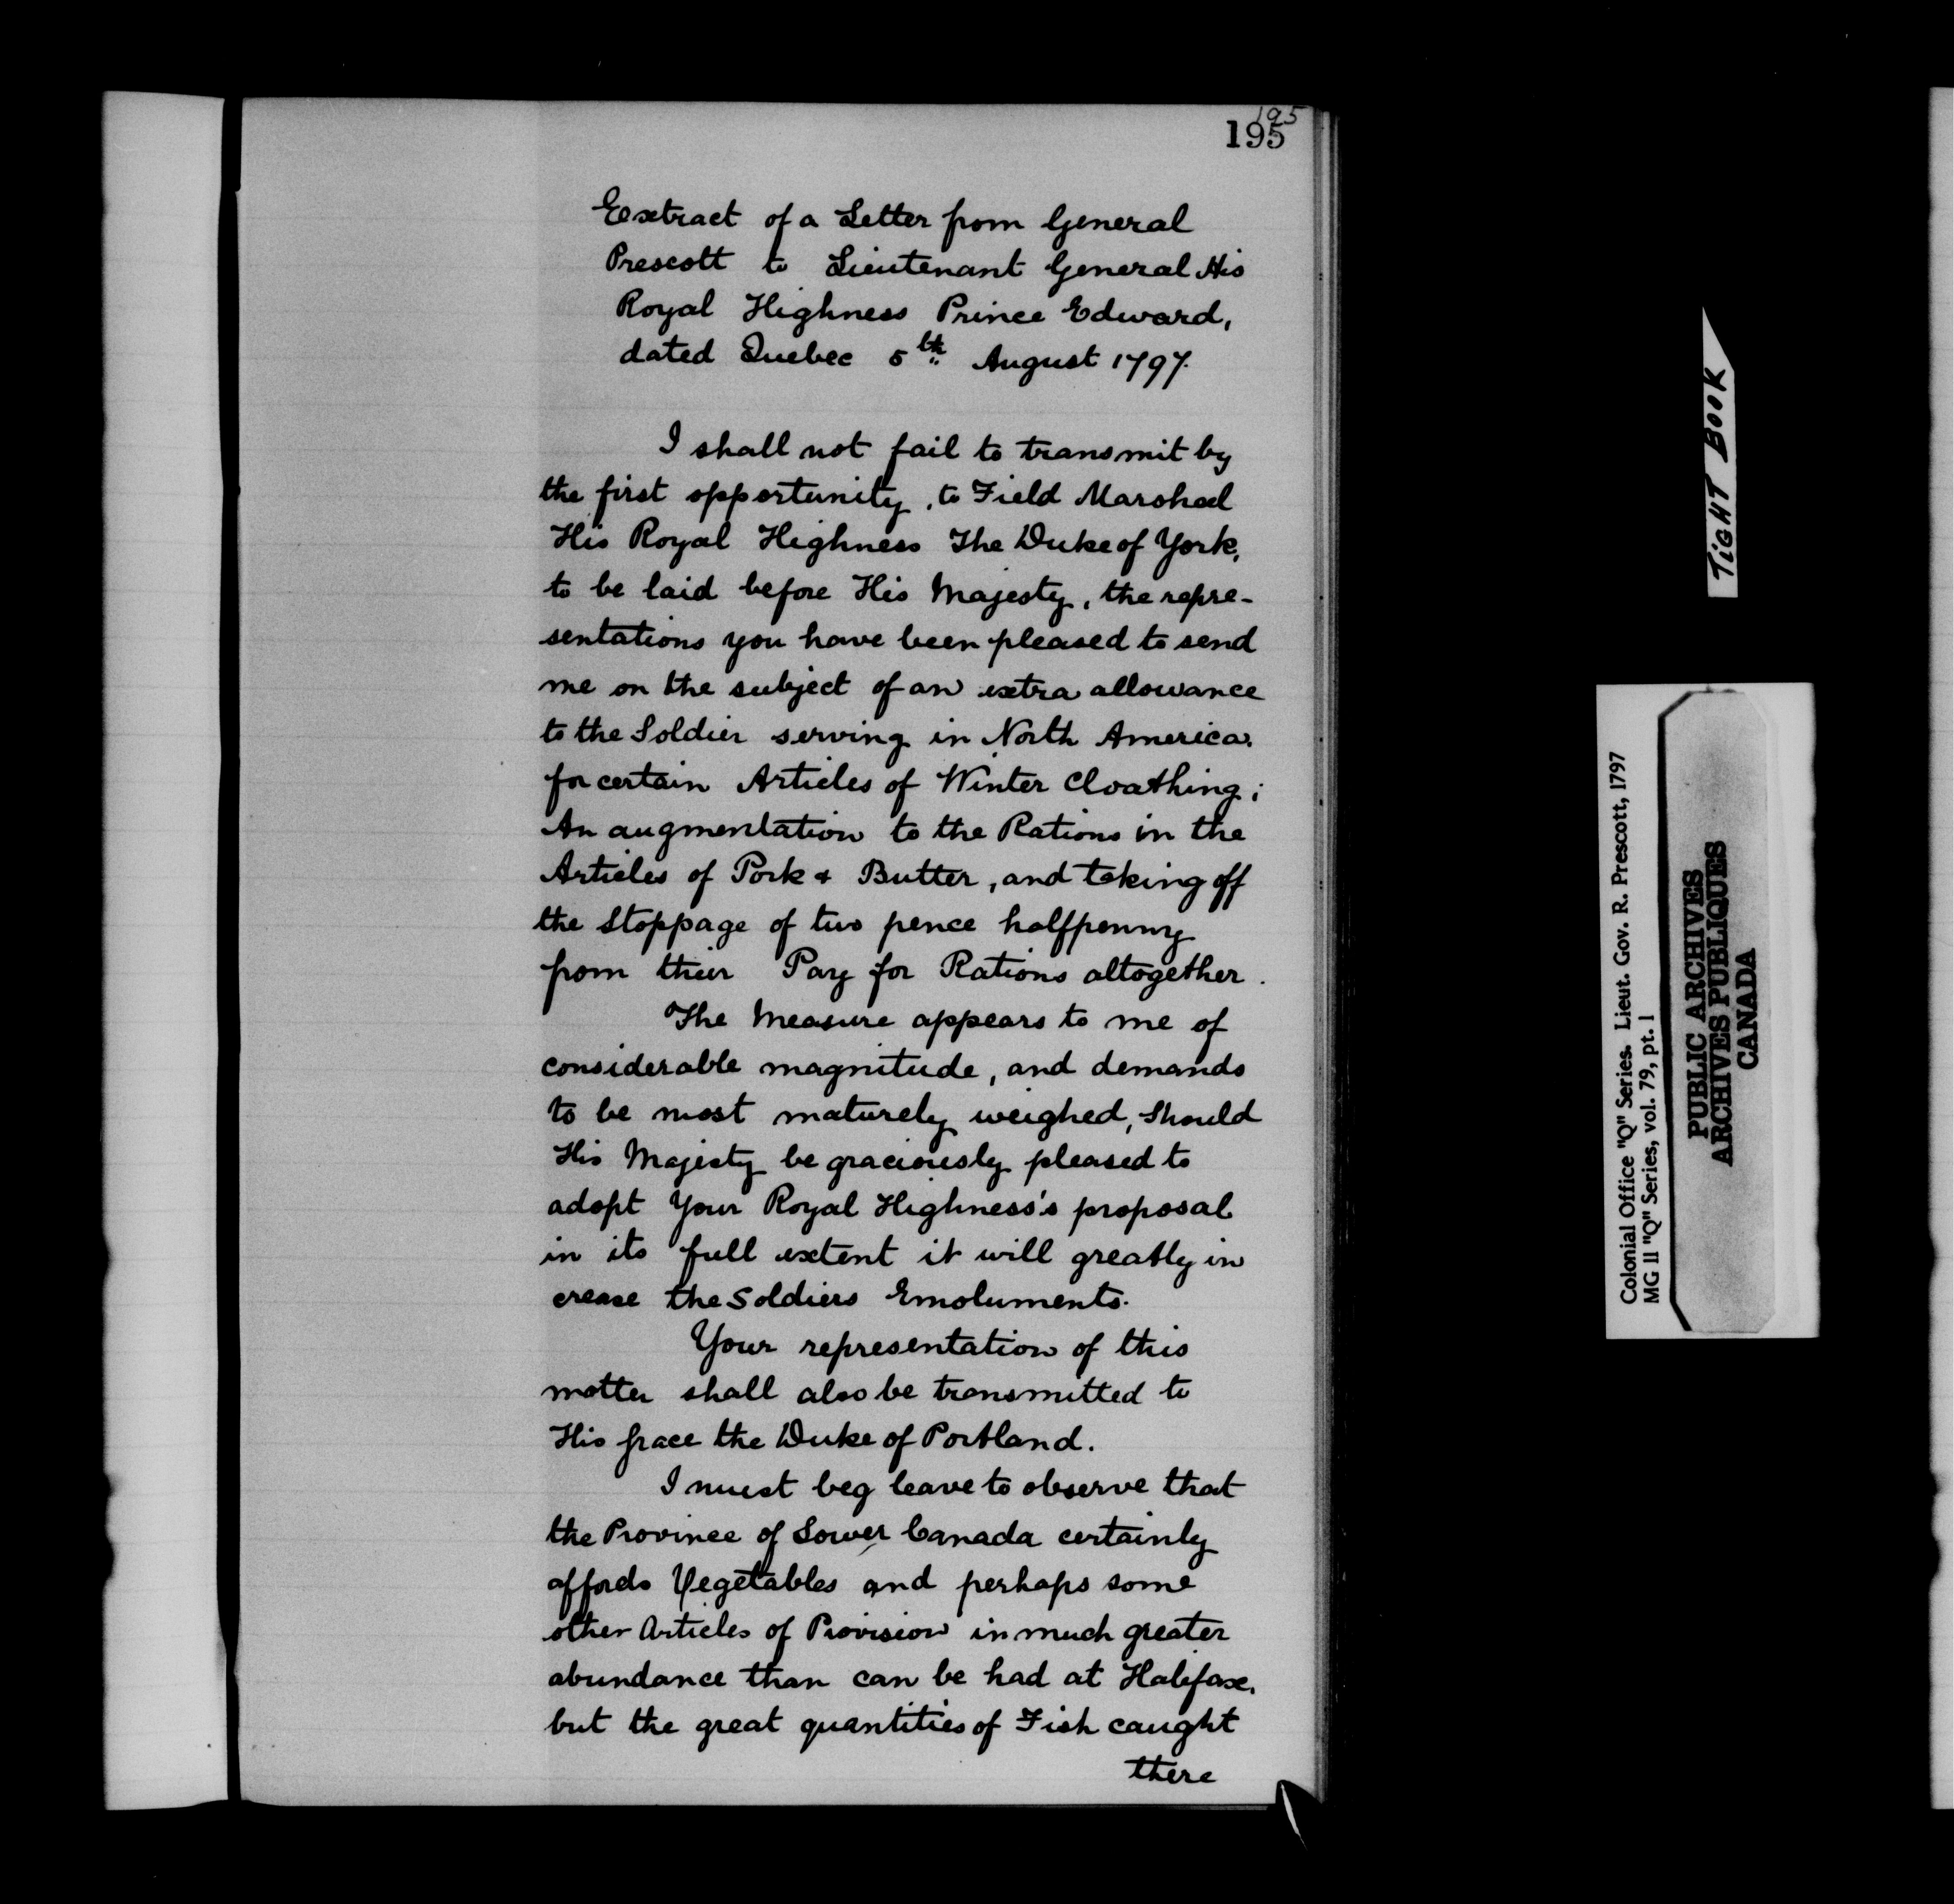 195
195
Extract of a Letter from General
Prescott to Lieutenant General His
Royal Highness Prince Edward,
dated Quebec 5th August 1797.
I shall not fail to transmit by
the first opportunity, to Field Marshal
His Royal Highness The Duke of York,
to be laid before His Majesty, the repre-
sentations you have been pleased to send
me on the subject of an extra allowance
to the Soldier serving in North America,
for certain Articles of Winter Cloathing;
An augmentation to the Rations in the
Articles of Pork & Butter, and taking off
the Stoppage of two pence halfpenny
from their Pay for Rations altogether.
The Measure appears to me of
considerable magnitude, and demands
to be most maturely weighed, Should
His Majesty be graciously pleased to
adopt Your Royal Highness's proposal
in its full extent it will greatly in
crease the Soldiers Emoluments.
Your representation of this
matter shall also be transmitted to
His Grace the Duke of Portland.
I must beg leave to observe that
the Province of Lower Canada certainly
affords Vegetables and perhaps some
other Articles of Provision in much greater
abundance than can be had at Halifax,
but the great quantities of Fish caught
there
TIGHT BOOK
Colonial Office "Q" Series. Lieut. Gov. R. Prescott, 1797
MG 11 "Q" Series, vol. 79, pt. 1
PUBLIC ARCHIVES
ARCHIVES PUBLIQUES
CANADA